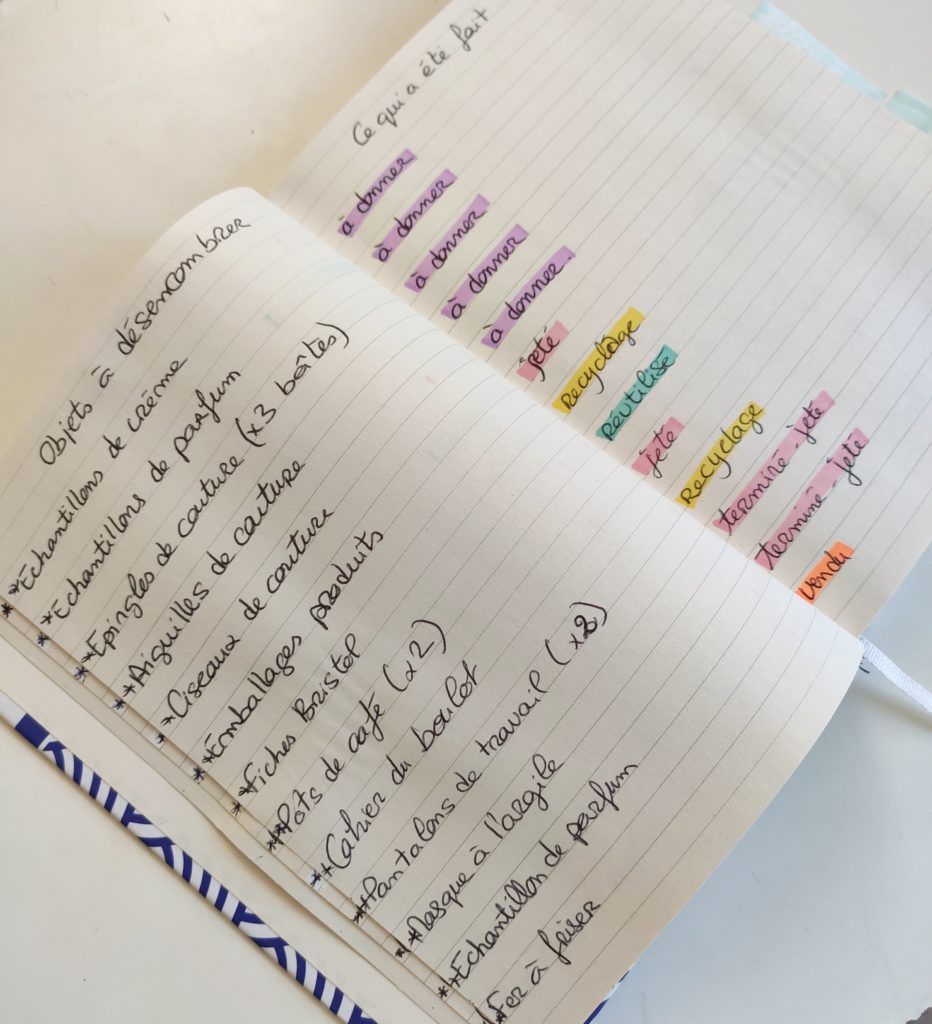 Objets à désencombrer
*Echantillons de crème
*Echantillons de parfum
*Epingles de couture (x3 boîtes)
*Aiguilles de couture
*Ciseaux de couture
*Emballages produits
*Fiches Bristol
*Pots de café (x2)
*Cahier du boulot
*Pantalons de travail (x3)
*Masque à l'argile
*Echantillon de parfum
*Fer à friser
Ce qui a été fait
à donner
à donner
à donner
à donner
à donner.
jeté
Recyclage
Réutilisé
jeté
Recyclage
terminé - jeté
terminé - jeté
vendu